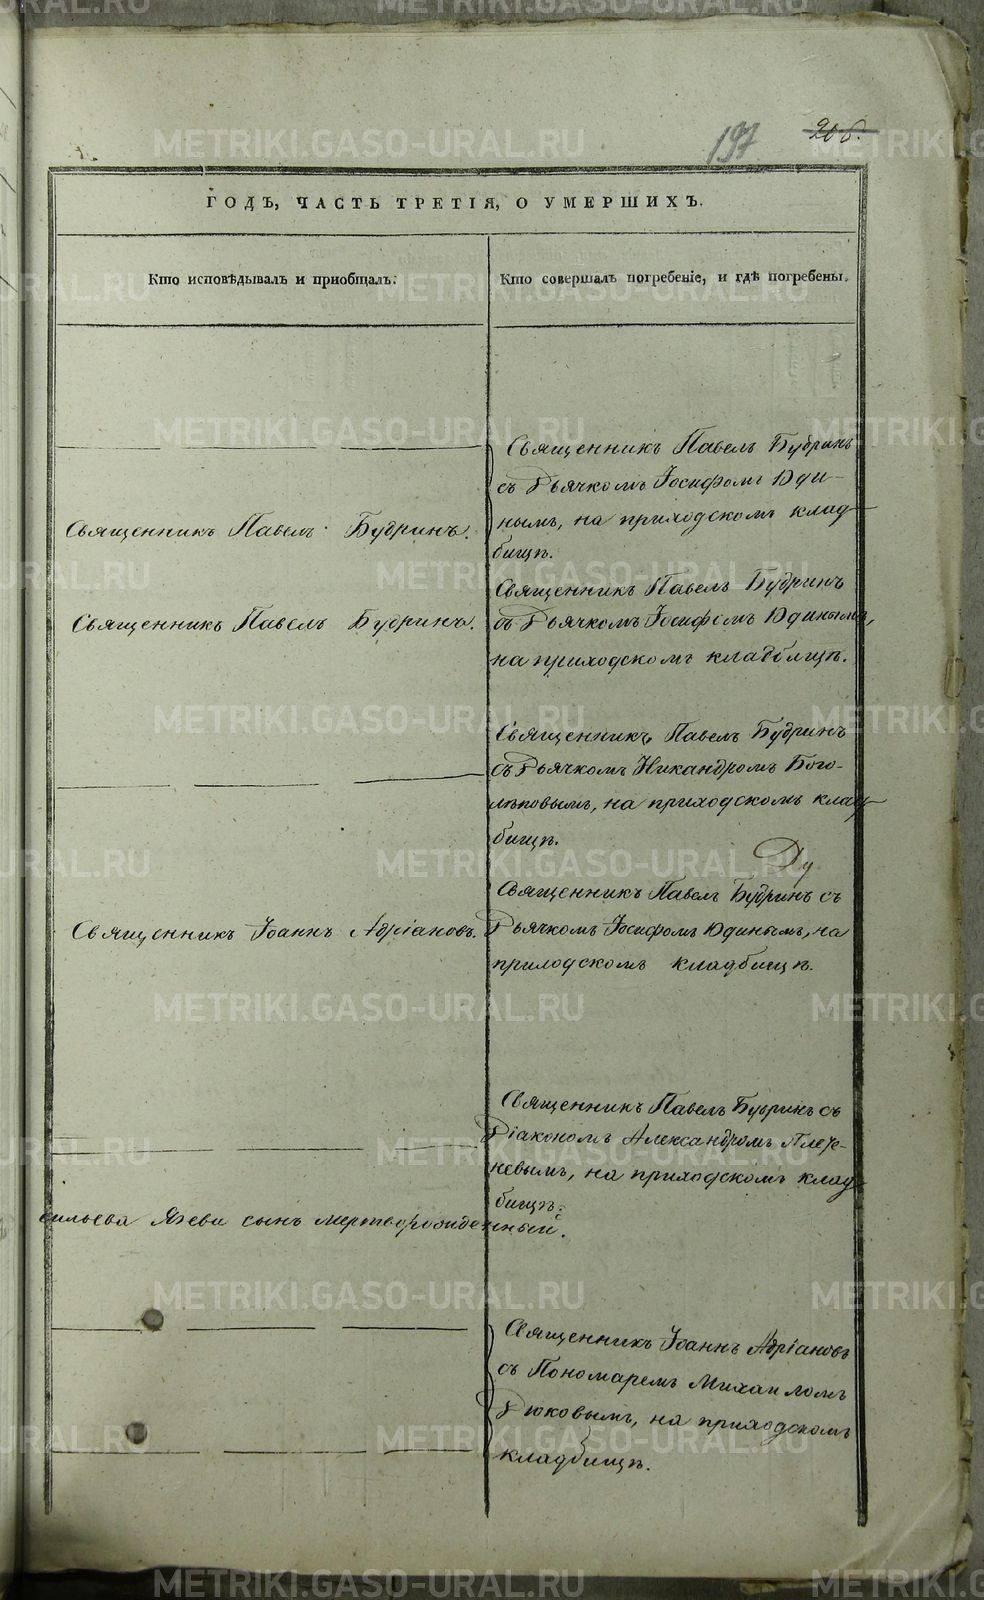 197
206.
ГОДЪ, ЧАСТЬ ТРЕТІЯ, О УМЕРШИХЪ.
Кто исповѣдывалъ и пріобщалъ.
Кто совершалъ погребеніе, и гдѣ погребены.
Священникъ Павелъ Будринъ
съ Дьячкомъ Іосифомъ Юди-
нымъ, на приходскомъ клад-
бищѣ.
Священникъ Павелъ Будринъ.
Священникъ Павелъ Будринъ
съ Дьячкомъ Іосифомъ Юдинымъ,
на приходскомъ кладбищѣ.
Священникъ Павелъ Будринъ.
Священникъ Павелъ Будринъ
съ Дьячкомъ Никандромъ Бого-
лѣповымъ, на приходскомъ клад-
бищѣ.
Священникъ Павелъ Будринъ съ
Дьячкомъ Іосифомъ Юдинымъ, на
приходскомъ кладбищѣ.
Священникъ Іоаннъ Адріановъ.
Священникъ Павелъ Будринъ съ
Діакономъ Александромъ
невымъ, на приходскомъ клад-
бищѣ.
сильева сынъ мертворожденный.
Священникъ Іоаннъ Адріановъ
съ Пономаремъ Михаиломъ
Дюковымъ, на приходскомъ
кладбищѣ.
METRIKI.GASO-URAL.RU